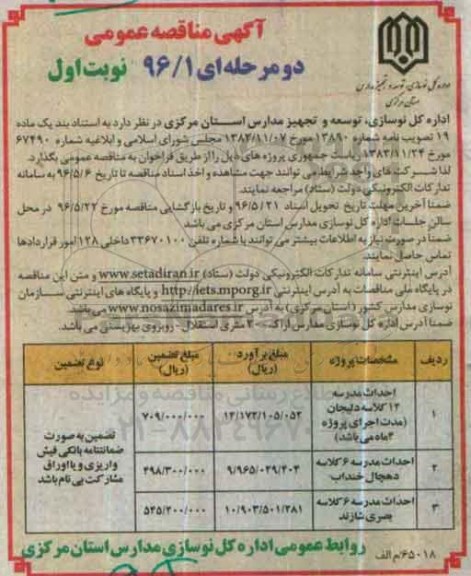 آگهی مناقصه عمومی
دو مرحله‌ای ۹۶/۱ نوبت اول
اداره کل نوسازی، توسعه و تجهیز مدارس
استان مرکزی
اداره کل نوسازی، توسعه و تجهیز مدارس استان مرکزی در نظر دارد به استناد بند یک ماده
۱۹ تصویب نامه شماره ۱۳۸۹۰ مورخ ۱۳۸۴/۱۱/۰۷ مجلس شورای اسلامی و ابلاغیه شماره ۶۷۴۹۰
مورخ ۱۳۸۳/۱۱/۲۴ ریاست جمهوری پروژه های ذیل را از طریق فراخوان به مناقصه عمومی بگذارد.
لذا شرکت های واجد شرایط می توانند جهت مشاهده و اخذ اسناد مناقصه تا تاریخ ۹۶/۵/۶ به سامانه
تدارکات الکترونیکی دولت (ستاد) مراجعه نمایند.
ضمنا آخرین مهلت تاریخ تحویل اسناد ۹۶/۵/۲۱ و تاریخ بازگشایی مناقصه مورخ ۹۶/۵/۲۲ در محل
سالن جلسات اداره کل نوسازی مدارس استان مرکزی می باشد
ضمنا در صورت نیاز به اطلاعات بیشتر می توانند با شماره تلفن ۳۳۶۷۰۱۰۰ داخلی ۱۲۸ امور قراردادها
تماس حاصل نمایند.
آدرس اینترنتی سامانه تدارکات الکترونیکی دولت (ستاد) www.setadiran.ir و متن این مناقصه
در پایگاه ملی مناقصات به آدرس اینترنتی http://iets.mporg.ir و پایگاه های اینترنتی سازمان
نوسازی مدارس کشور (استان مرکزی) به آدرس www.nosazimadares.ir می باشد.
ضمنا آدرس اداره کل نوسازی مدارس اراک - ۲۰ متری استقلال - روبروی بهزیستی می باشد.
ردیف مشخصات پروژه مبلغ برآورد (ریال) مبلغ تضمین (ریال) نوع تضمین
۱ احداث مدرسه ۱۲ کلاسه دلیجان (مدت اجرای پروژه ۴ ماه می باشد) ۱۴/۱۷۲/۱۰۵/۰۵۲ ۷۰۹/۰۰۰/۰۰۰
۲ احداث مدرسه ۶ کلاسه دهچال خنداب ۹/۹۶۵/۰۲۹/۴۰۴ ۴۹۸/۳۰۰/۰۰۰
۳ احداث مدرسه ۶ کلاسه بصری شازند ۱۰/۹۰۳/۵۰۱/۲۸۱ ۵۴۵/۲۰۰/۰۰۰
تضمین به صورت
ضمانتنامه بانکی فیش
واریزی و یا اوراق
مشارکت بی نام باشد
۶۵۰۱۸/م الف
روابط عمومی اداره کل نوسازی مدارس استان مرکزی